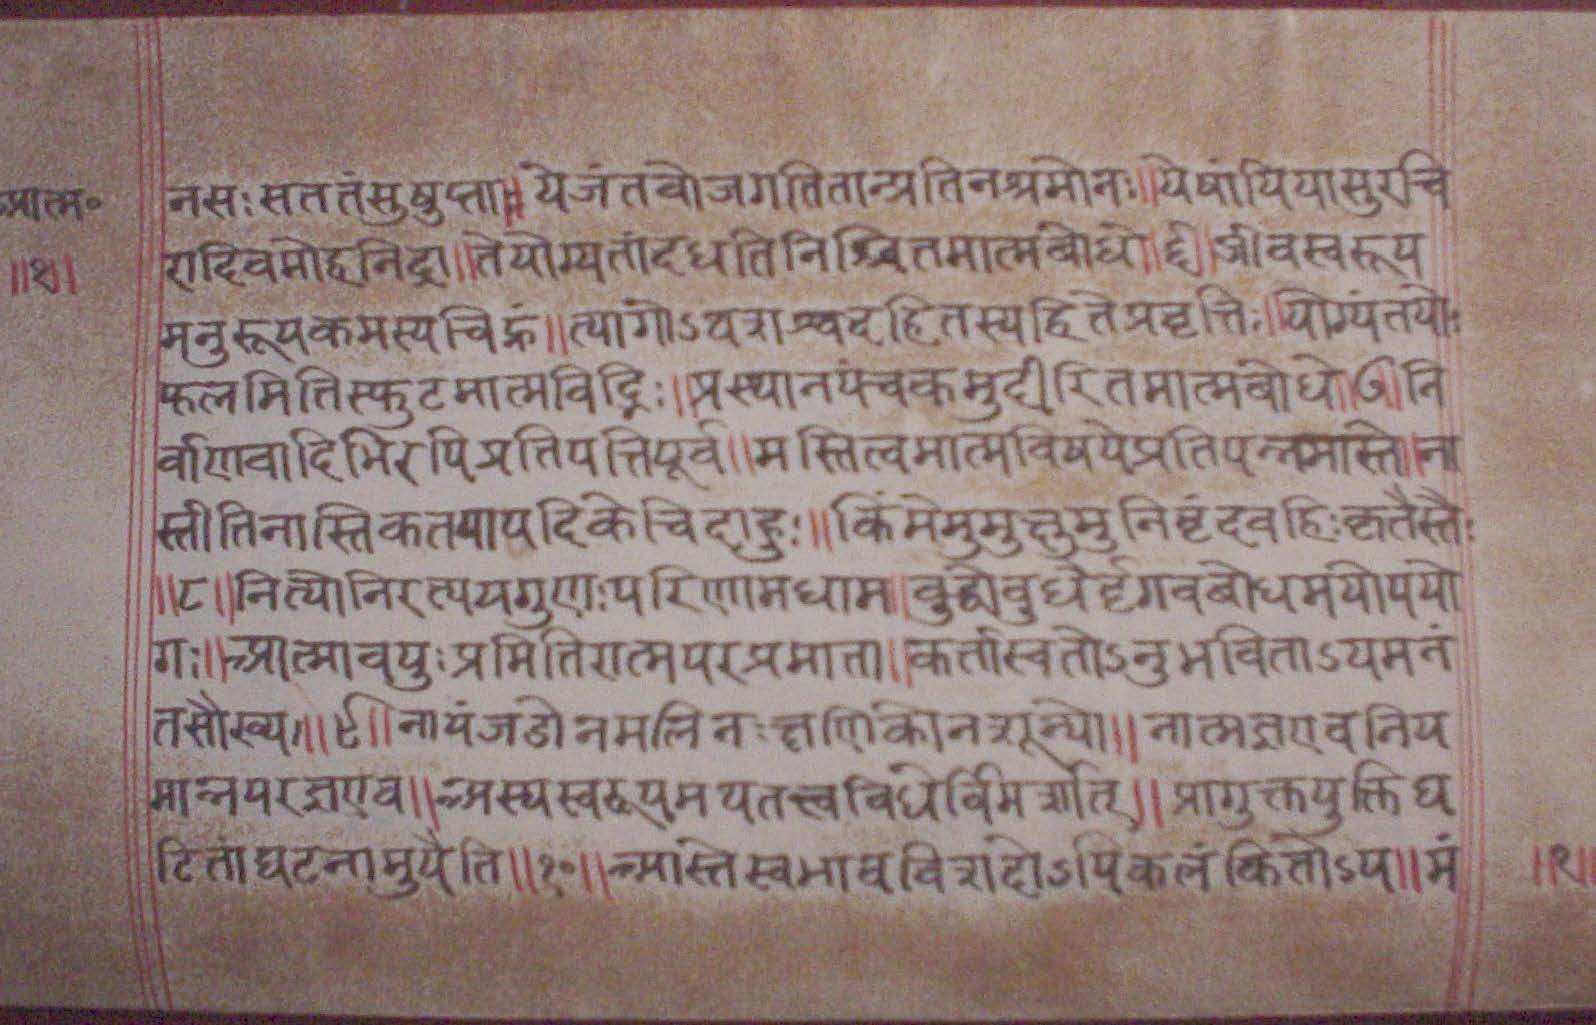 आत्म॰
॥१॥
नसः सततंसुषुप्ता॥ येजंतवोजगतितान्प्रतिनश्रमोनः॥ येषांपियासुरचि
रादिवमोहनिद्रा॥ तेयोग्यतांदधतिनिश्चितमात्मबोधे॥६॥ जीवस्वरूप
मनुरूपकमस्यचिह्नं॥ त्यागोऽयशश्वदहितस्यहितेप्रवृत्तिः॥ योग्यंतयोः
फलमितिस्फुटमात्मविद्भिः॥ प्रस्थानपंचकमुदीरितमात्मबोधे॥७॥ नि
र्वाणवादिभिरपिप्रतिपत्तिपूर्व॥ मस्तित्वमात्मविषयेप्रतिपन्नमास्ते॥ ना
स्तीतिनास्तिकतयायदिकेचिदाहुः॥ किंमेमुमुक्षुमुनिवृंदवहिःकृतैस्तैः
॥८॥ नित्योनिरत्ययगुणःपरिणामधाम॥ बुद्धोबुधेर्दृगवबोधमयोपयो
गः॥ आत्मावपुःप्रमितिरात्मपरप्रमाता॥ कर्तास्वतोऽनुभविताऽयमनं
तसौख्य॥॥९॥ नायंजडोनमलिनःक्षणिकोनशून्यो॥ नात्मज्ञएवनिय
मान्नपरज्ञएव॥ अस्यस्वरूपमयतत्त्वविधेर्विमर्शाति॥ प्रागुक्तयुक्तिघ
टितांघटनामुपैति॥१०॥ आस्तेस्वभावविशदोऽपिकलंकितोऽय॥ मं
॥२॥